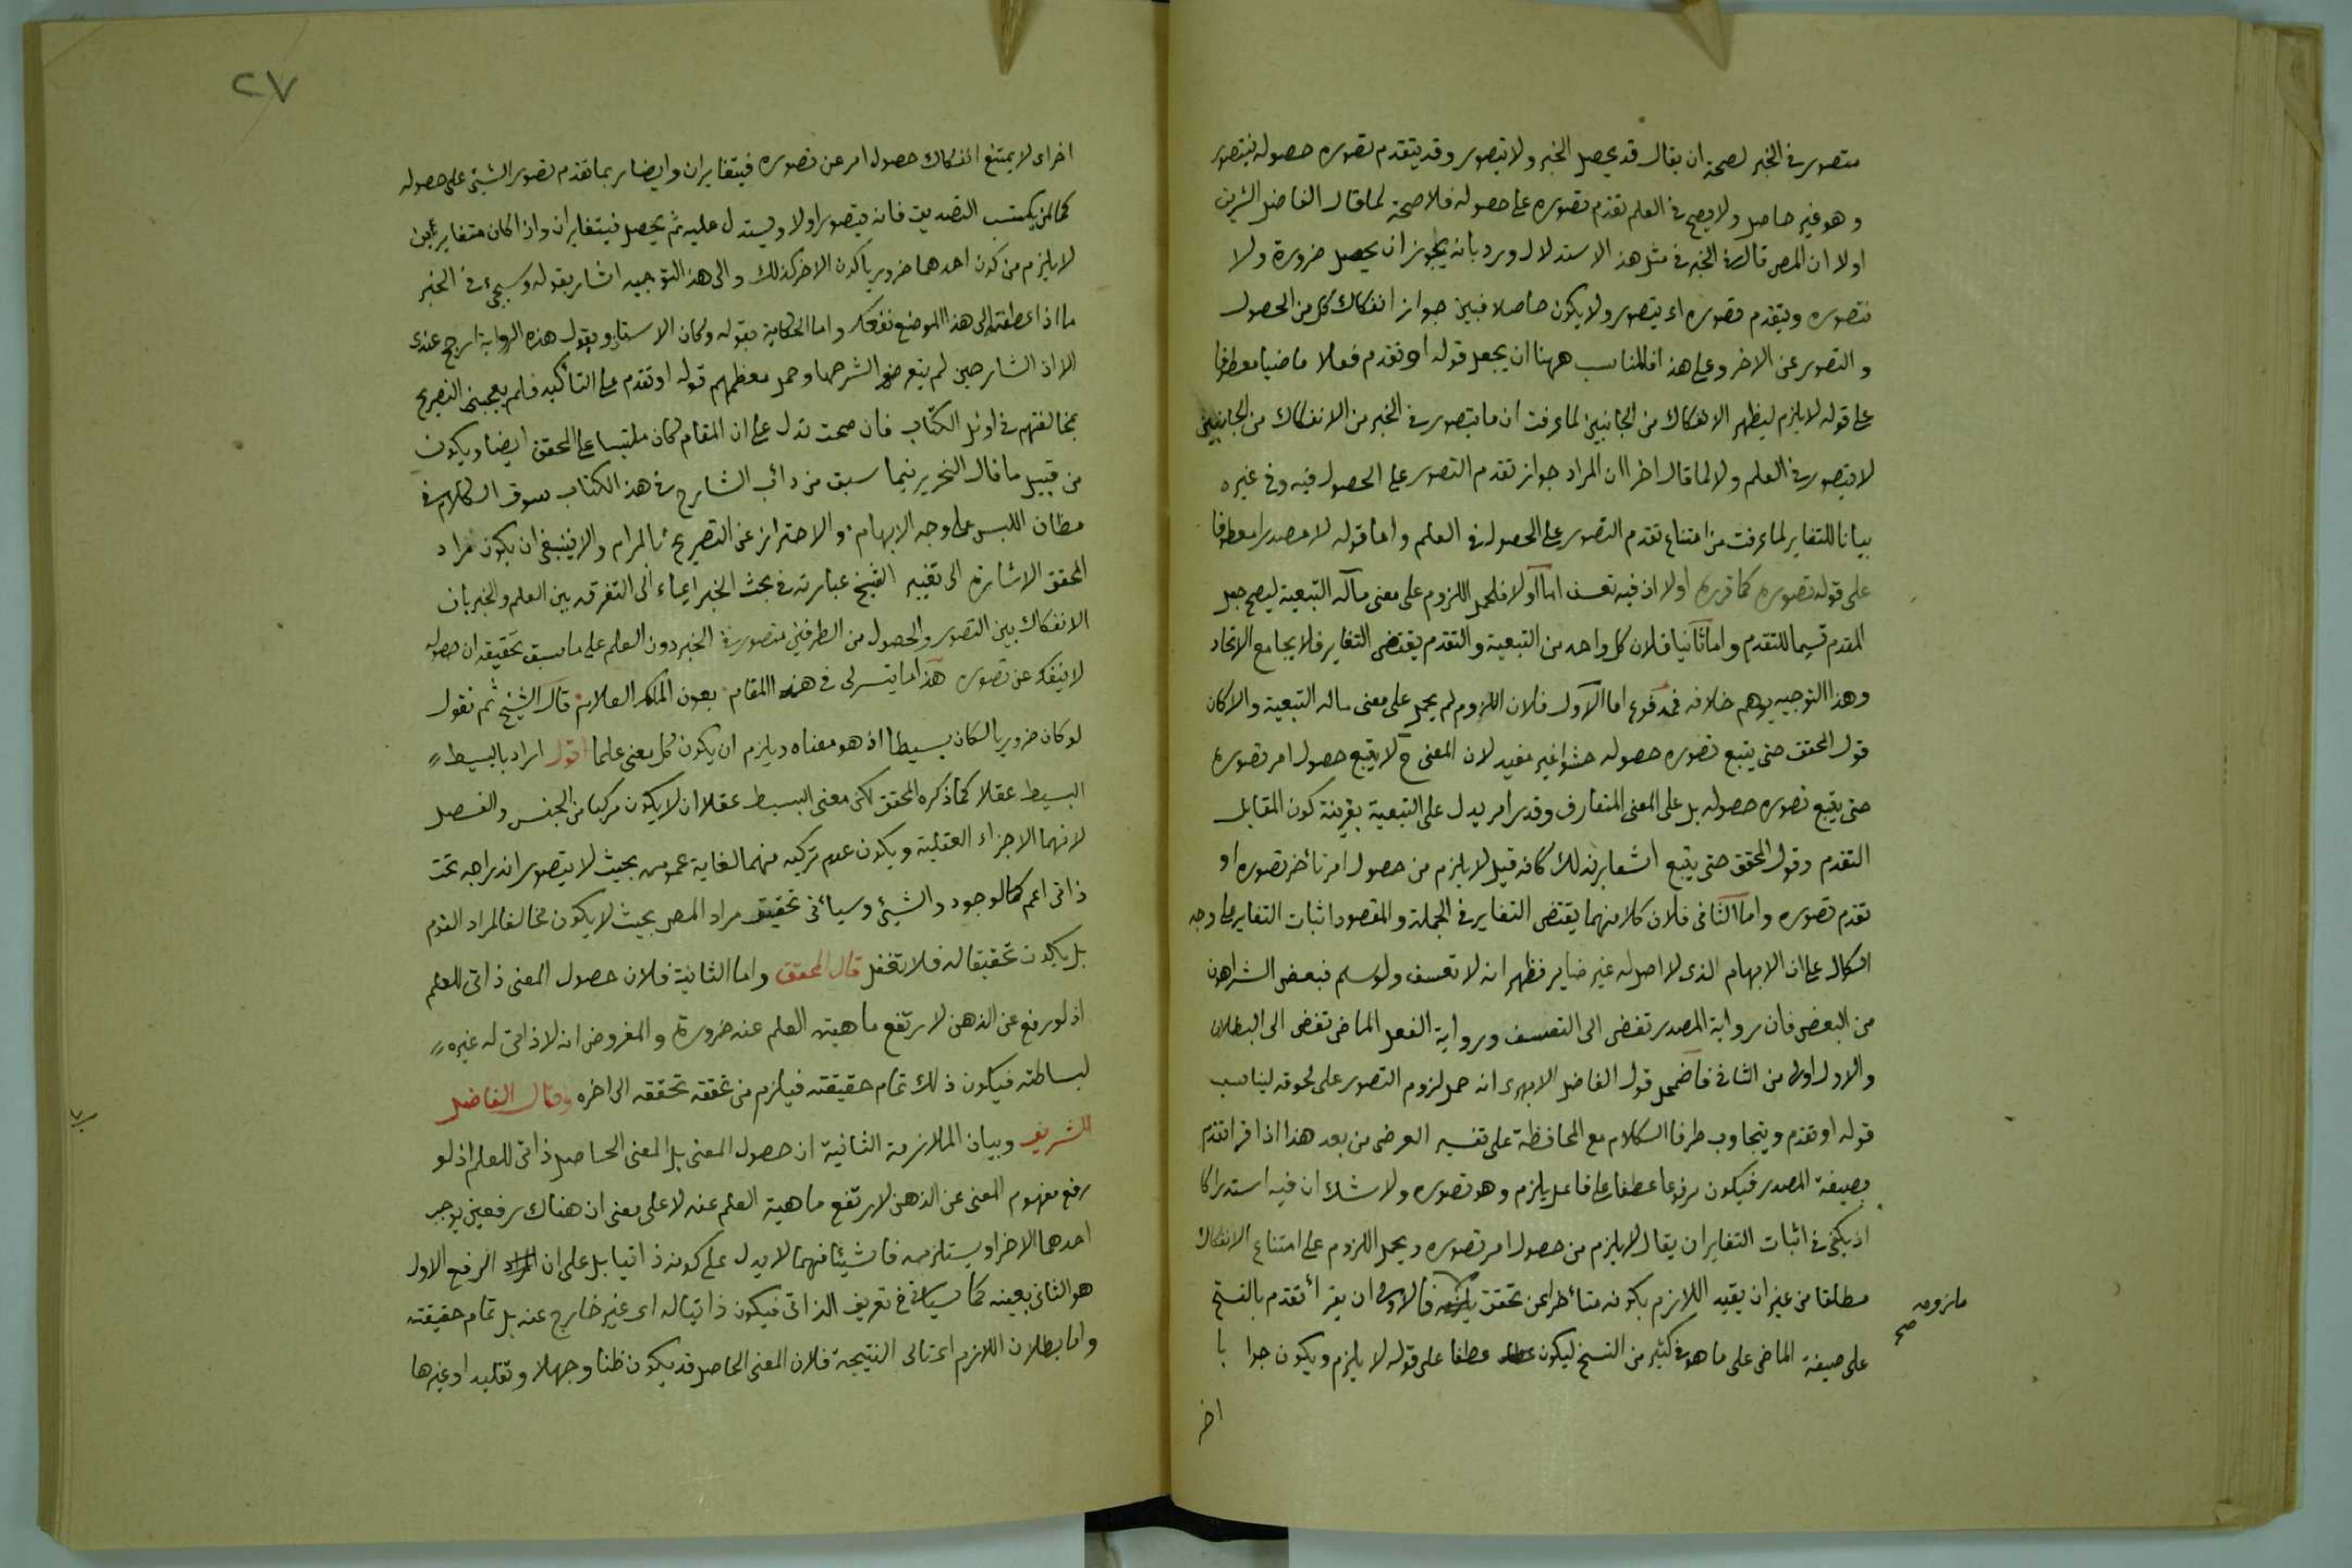 متصور في الخبر لصحة ان يقال قد يحصل الخبر ولا يتصور وقد يتقدم تصوره حصوله فيتصور
وهو غير حاصل ولا يصح في العلم تقدم تصوره على حصوله فلا صحة لما قال الفاضل الشريف
اولا ان المص قال في الخبر في مثل هذا الاستدلال ورد بانه يجوز ان يحصل ضرورة ولا
نتصوره ويتقدم تصوره اى يتصور ولا يكون حاصلا فبين جواز انفكاك كل من الحصول
والتصور عن الاخر وعلى هذا فالمناسب ههنا ان يجعل قوله او تقدم فعلا ماضيا معطوفا
على قوله لا يلزم ليظهر الانفكاك من الجانبين لما عرفت ان ما يتصور في الخبر من الانفكاك من الجانبين
لا يتصور في العلم ولا لما قال اخرا ان المراد جواز تقدم التصور على الحصول فيه وفي غيره
بيانا للتغاير لما عرفت من امتناع تقدم التصور على الحصول في العلم واما قوله لا مصدرا معطوفا
على قوله تصوره كما قرره اولا اذ فيه تعسف اما اولا فلحمل اللزوم على معنى مآله التبعية ليصح جعل
المقدم قسيما للتقدم واما ثانيا فلان كل واحد من التبعية والتقدم يقتضى التغاير فلا يجامع الاتحاد
وهذا التوجيه يوهم خلافه فمدفوع اما الاول فلان اللزوم لم يحمل على معنى ماله التبعية والا كان
قول المحقق حتى يتبع تصوره حصوله حشوا غير مفيد لان المعنى ح لا يتبع حصول امر تصوره
حتى يتبع تصوره حصوله بل على المعنى المتعارف وقدر امر يدل على التبعية بقرينة كون المقابل
التقدم وقول المحقق حتى يتبع اشعار بذلك كانه قيل لا يلزم من حصول امر تأخر تصوره او
تقدم تصوره واما الثانى فلان كلا منهما يقتضى التغاير في الجملة والمقصود اثبات التغاير على وجه
الكمال على ان الابهام الذى لا اصل له غير ضاير فظهر انه لا تعسف ولو سلم فبعض الشر اهون
من البعض فان رواية المصدر تفضى الى التعسف ورواية الفعل الماضى تفضى الى البطلان
والاول اولى من الثانى فاضمحل قول الفاضل الابهرى انه حمل لزوم التصور على لحوقه ليناسب
قوله او تقدم ويتجاوب طرفا الكلام مع المحافظة على تفسير العرضى من بعد هذا اذا قرا تقدم
بصيغة المصدر فيكون مرفوعا عطفا على فاعل يلزم وهو تصوره ولا شك ان فيه استدراكا
اذ يكفى في اثبات التغاير ان يقال لا يلزم من حصول امر تصوره ويحمل اللزوم على امتناع الانفكاك
مطلقا من غير ان يقيد اللازم بكونه متأخرا عن تحقق فالاولى ان يقرأ تقدم بالفتح
ملزومه صح
على صيغة الماضى على ما هو في كثير من النسخ ليكون عطفا على قوله لا يلزم ويكون جوابا
اخر
٢٧
اخر اى لا يمتنع انفكاك حصول امر عن تصوره فيتغايران وايضا ربما تقدم تصور الشيئ على حصوله
كما لمن يكتسب التصديق فانه يتصور اولا ويستدل عليه ثم يحصل فيتغايران واذا كان متغايرين
لا يلزم من كون احدهما ضروريا كون الاخر كذلك والى هذا التوجيه اشار بقوله وسيجئ في الخبر
ما اذا عطفته الى هذا الموضع نفعك واما الحكاية بقوله وكان الاستاد يقول هذه الرواية ارجح عندى
الا اذ الشارحين لم يتعرضوا لشرحها وحمل معظمهم قوله او تقدم على التأكيد فلم يعجبنى التصريح
بمخالفتهم في اوئل الكتاب فان صحت تدل على ان المقام كان ملتبسا على المحقق ايضا ويكون
من قبيل ما قال النحرير فيما سبق من دأب الشارح في هذا الكتاب سوق الكلام في
مظان اللبس على وجه الابهام والاحتراز عن التصريح بالمرام والا فينبغى ان يكون مراد
المحقق الاشارة الى تقييد الشيخ عبارته في بحث الخبر ايماء الى التفرقه بين العلم والخبر بان
الانفكاك بين التصور والحصول من الطرفين متصور في الخبر دون العلم على ما سبق تحقيقه ان حصوله
لا ينفك عن تصوره هذا ما تيسر لى في هذا المقام بعون الملك العلام قال الشيخ ثم نقول
لو كان ضروريا لكان بسيطا اذ هو معناه ويلزم ان يكون كل معنى علما اقول اراد بالبسيط
البسيط عقلا كما ذكره المحقق لكن معنى البسيط عقلا ان لا يكون مركبا من الجنس والفصل
لانهما الاجزاء العقلية ويكون عدم تركبه منهما لغاية عمومه بحيث لا يتصور اندراجه تحت
ذاتى اعم كالوجود والشيئ وسيأتى تحقيق مراد المص بحيث لا يكون مخالفا لمراد القوم
بل يكون تحقيقا له فلا تغفل قال المحقق واما الثانية فلان حصول المعنى ذاتى للعلم
اذ لو رفع عن الذهن لارتفع ماهية العلم عنه ضرورة والمفروض انه لا ذاتى له غيره
لبساطته فيكون ذلك تمام حقيقته فيلزم من تحققه تحققه الى اخره وقال الفاضل
الشريف وبيان الملازمة الثانية ان حصول المعنى بل المعنى الحاصل ذاتى للعلم اذ لو
رفع مفهوم المعنى عن الذهن لارتفع ماهية العلم عنه لا على معنى ان هناك رفعين يوجب
احدهما الاخر او يستلزمه فان شيئا منهما لا يدل على كونه ذاتيا بل على ان الرفع الاول
هو الثانى بعينه كما سيأتى في تعريف الذاتى فيكون ذاتيا له اى غير خارج عنه بل تمام حقيقته
واما بطلان اللازم اى تالى النتيجة فلان المعنى الحاصل قد يكون ظنا وجهلا وتقليدا وغيرها